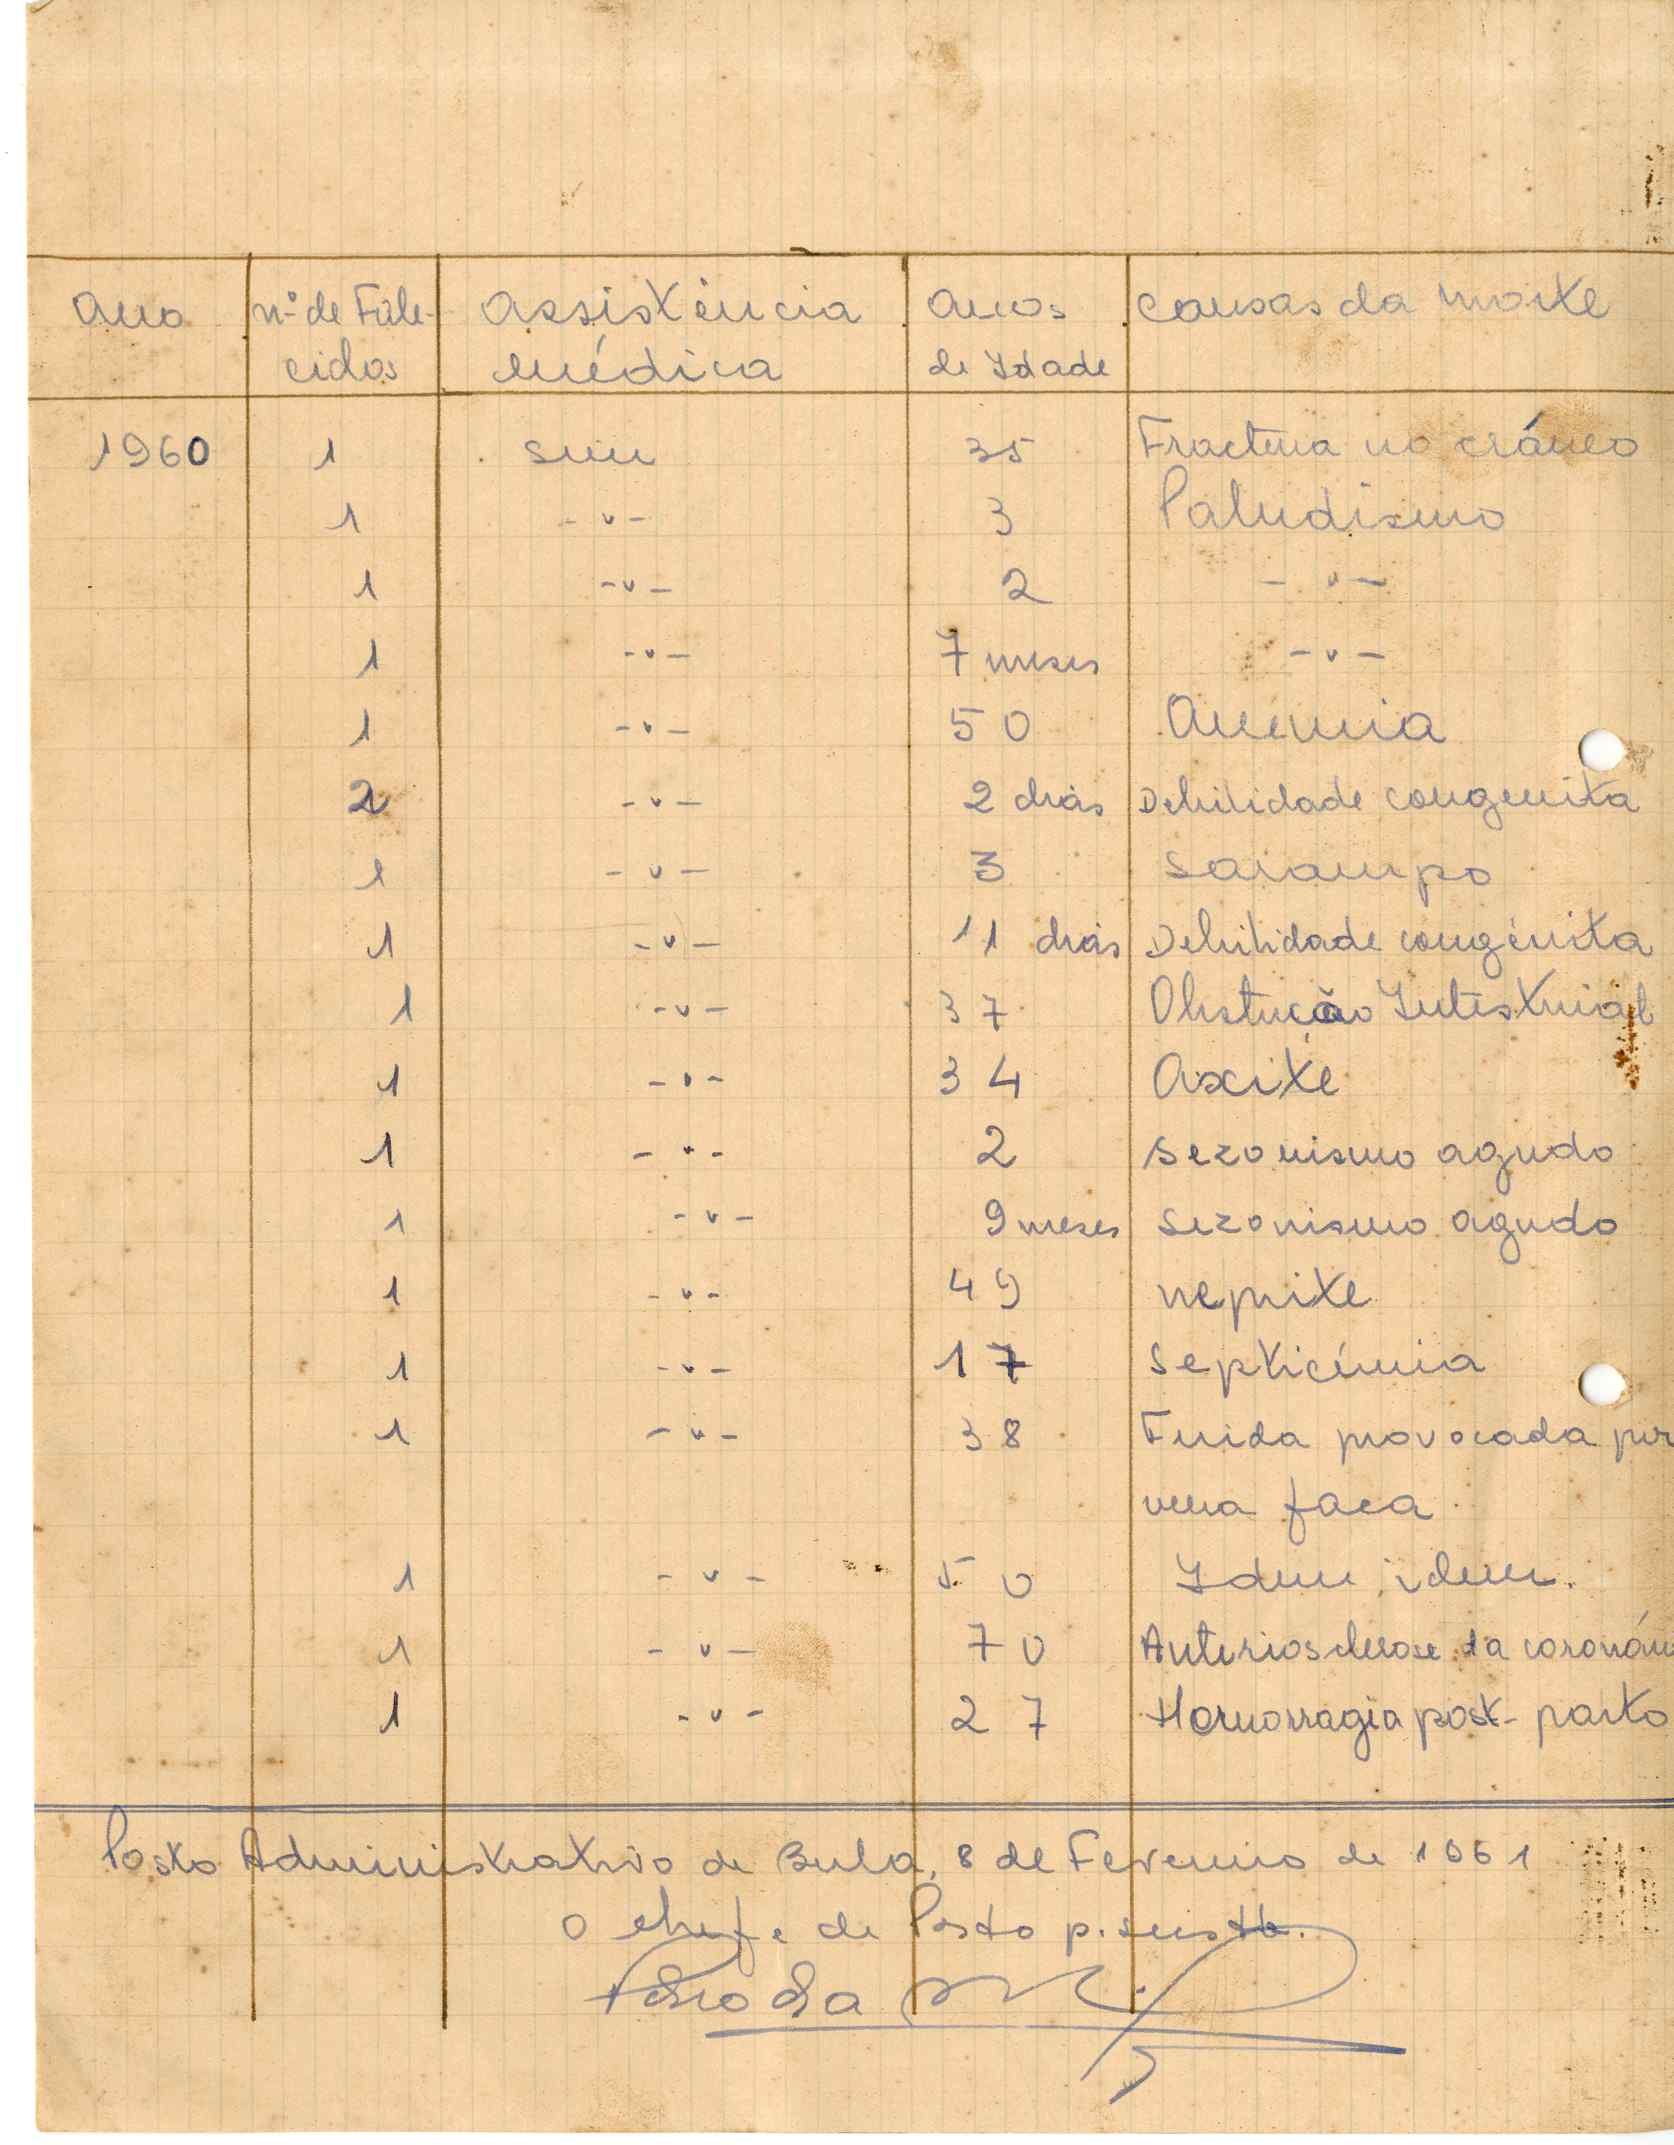 Ano nº de Fale- Assistência Anos Causas da morte
cidos médica de Idade
1960 1 sim 35 Fractura no cráneo
1 -"- 3 Paludismo
1 -"- 2 -"-
1 -"- 7 meses -"-
1 -"- 50 Anemia
2 -"- 2 dias Debilidade congenita
1 -"- 3 Sarampo
1 -"- 11 dias Debilidade congénita
1 -"- 37 Obstução Intestinial
1 -"- 34 Ascite
1 -"- 2 Sezonismo agudo
1 -"- 9 meses Sezonismo agudo
1 -"- 49 neprite
1 -"- 17 Septicémia
1 -"- 38 Ferida provocada por
uma faca
1 -"- 50 Idem, idem.
1 -"- 70 Anteriosclerose da coronári
1 -"- 27 Hemorragia post-parto
Posto Administrativo de Bula, 8 de Fevereiro de 1961
O chefe de Posto p. sustb.